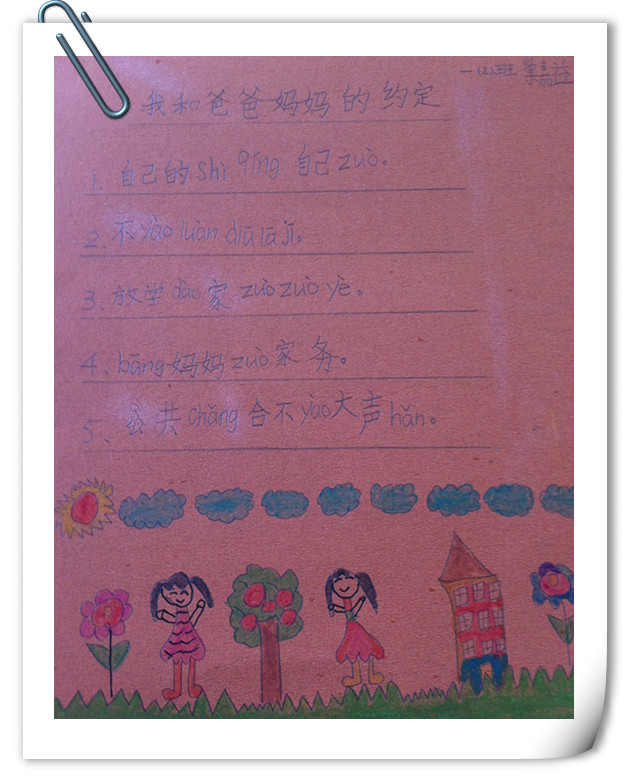 一(2)班 梁嘉益
我和爸爸妈妈的约定
1、自己的shì qíng 自己zuò。
2、不yào luàn diū lā jī。
3、放学dào家 zuò zuò yè。
4、bāng妈妈zuò家务。
5、公共chǎng合不yào大声hǎn。